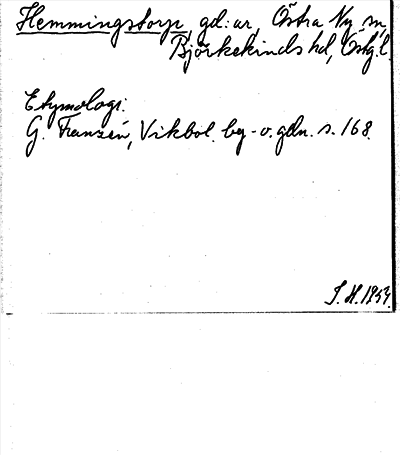 Hemmingstorp, gd:ar, Östra Ny sn,
Björkekinds hd, Östg.l.
Etymologi:
G. Franzén, Vikbol. by- o. gdn. s. 168.
J. H. 1954.